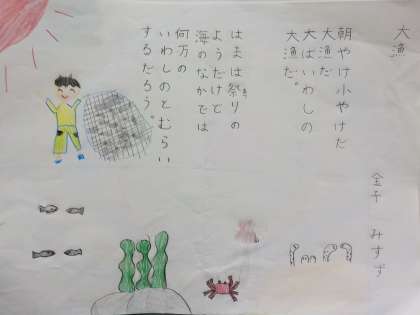 大漁
金子 みすず
朝やけ小やけだ
大漁だ
大ばいわしの
大漁だ。
はまは祭りの
ようだけど
海のなかでは
何万の
いわしのとむらい
するだろう。